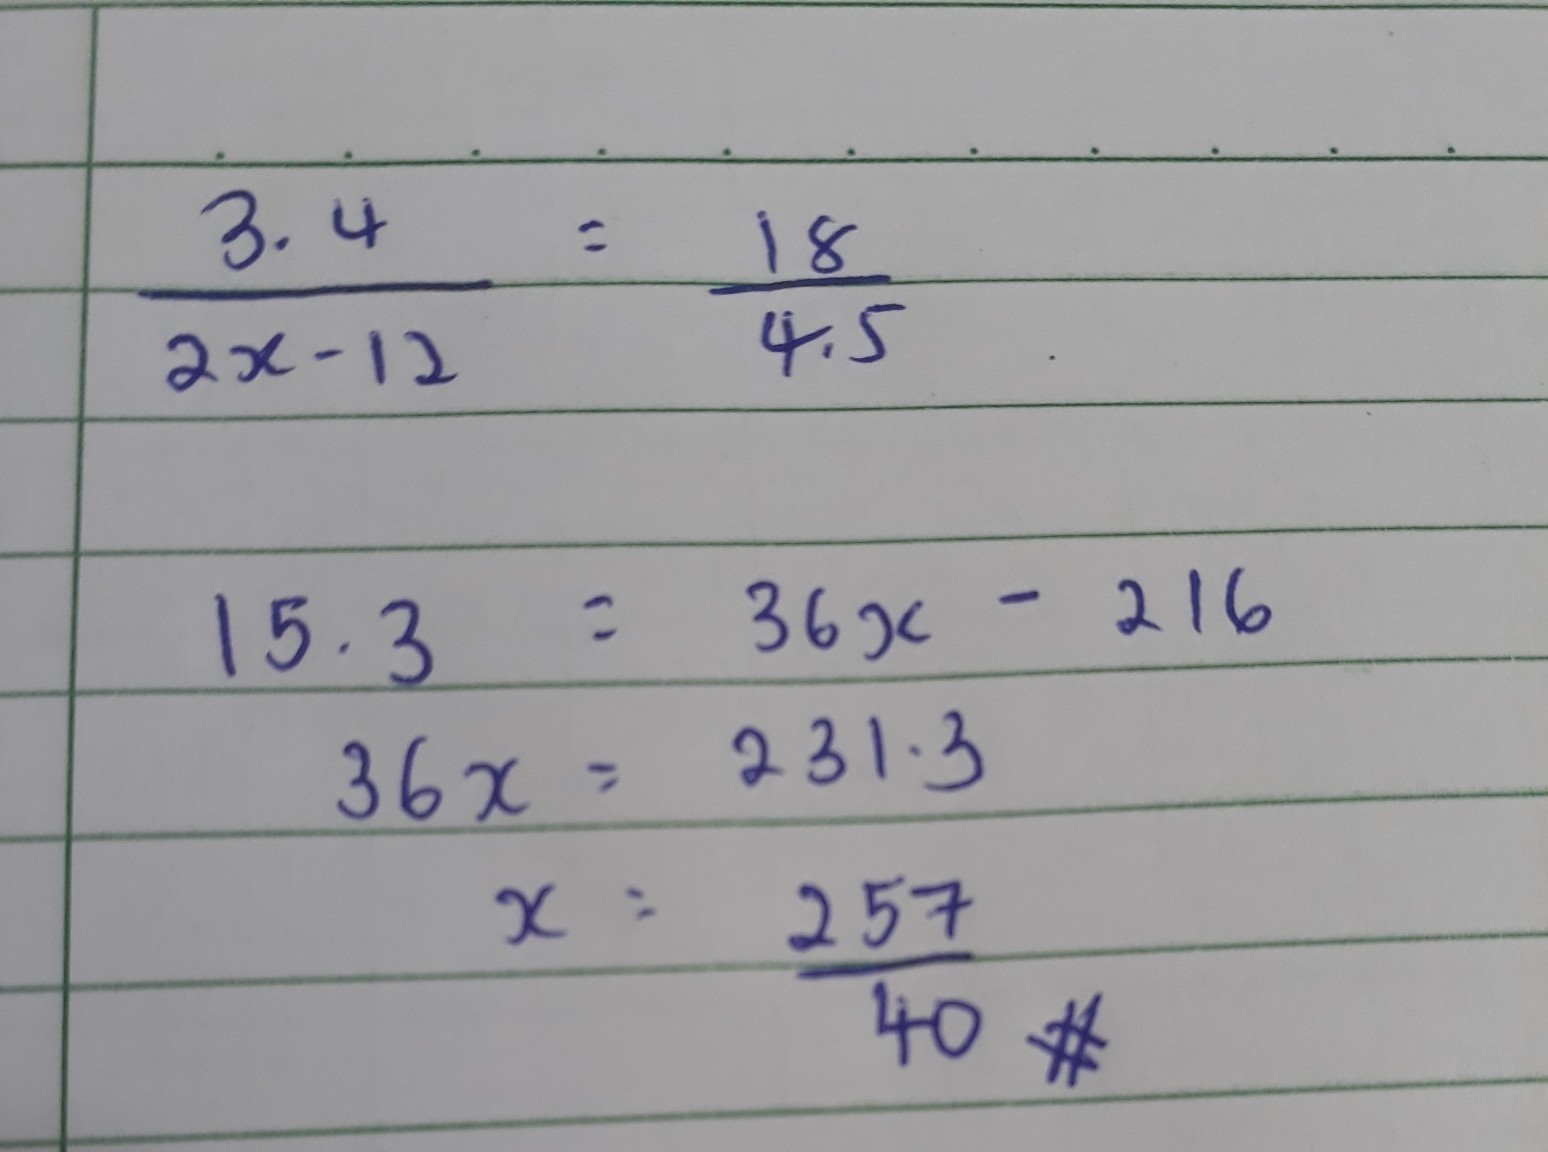 3.4 = 18
2x-12 4.5
15.3 = 36x - 216
36x = 231.3
x = 257
40 #